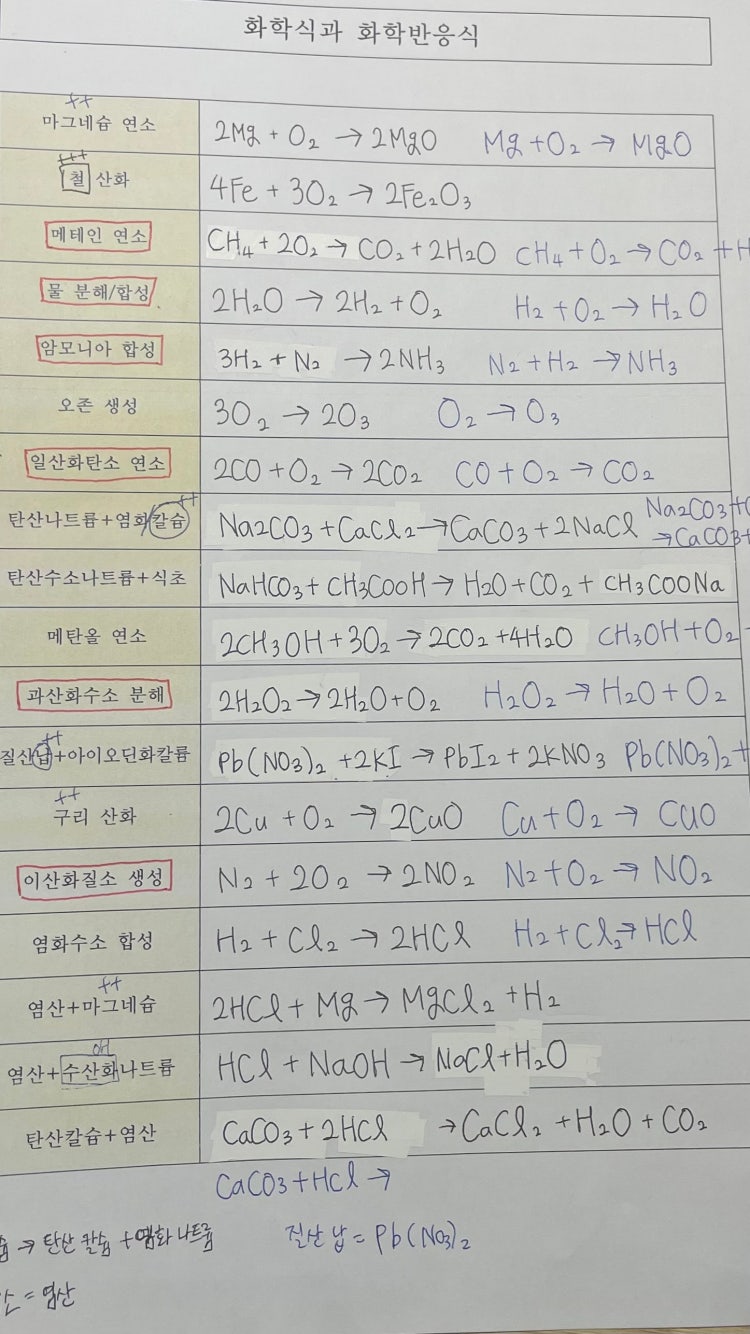 화학식과 화학반응식
++
마그네슘 연소 2Mg + O₂ → 2MgO Mg + O₂ → MgO
+++
철 산화 4Fe + 3O₂ → 2Fe₂O₃
메테인 연소 CH₄ + 2O₂ → CO₂ + 2H₂O CH₄ + O₂ → CO₂ + H
물 분해/합성 2H₂O → 2H₂ + O₂ H₂ + O₂ → H₂O
암모니아 합성 3H₂ + N₂ → 2NH₃ N₂ + H₂ → NH₃
오존 생성 3O₂ → 2O₃ O₂ → O₃
일산화탄소 연소 2CO + O₂ → 2CO₂ CO + O₂ → CO₂
++
탄산나트륨+염화칼슘 Na₂CO₃ + CaCl₂ → CaCO₃ + 2NaCl Na₂CO₃ +
→ CaCO₃ +
탄산수소나트륨+식초 NaHCO₃ + CH₃COOH → H₂O + CO₂ + CH₃COONa
메탄올 연소 2CH₃OH + 3O₂ → 2CO₂ + 4H₂O CH₃OH + O₂
과산화수소 분해 2H₂O₂ → 2H₂O + O₂ H₂O₂ → H₂O + O₂
++
질산납+아이오딘화칼륨 Pb(NO₃)₂ + 2KI → PbI₂ + 2KNO₃ Pb(NO₃)₂ +
++
구리 산화 2Cu + O₂ → 2CuO Cu + O₂ → CuO
이산화질소 생성 N₂ + 2O₂ → 2NO₂ N₂ + O₂ → NO₂
염화수소 합성 H₂ + Cl₂ → 2HCl H₂ + Cl₂ → HCl
++
염산+마그네슘 2HCl + Mg → MgCl₂ + H₂
OH
염산+수산화나트륨 HCl + NaOH → NaCl + H₂O
탄산칼슘+염산 CaCO₃ + 2HCl → CaCl₂ + H₂O + CO₂
CaCO₃ + HCl →
슘 → 탄산 칼슘 + 염화 나트륨 질산 납 = Pb(NO₃)₂
= 염산